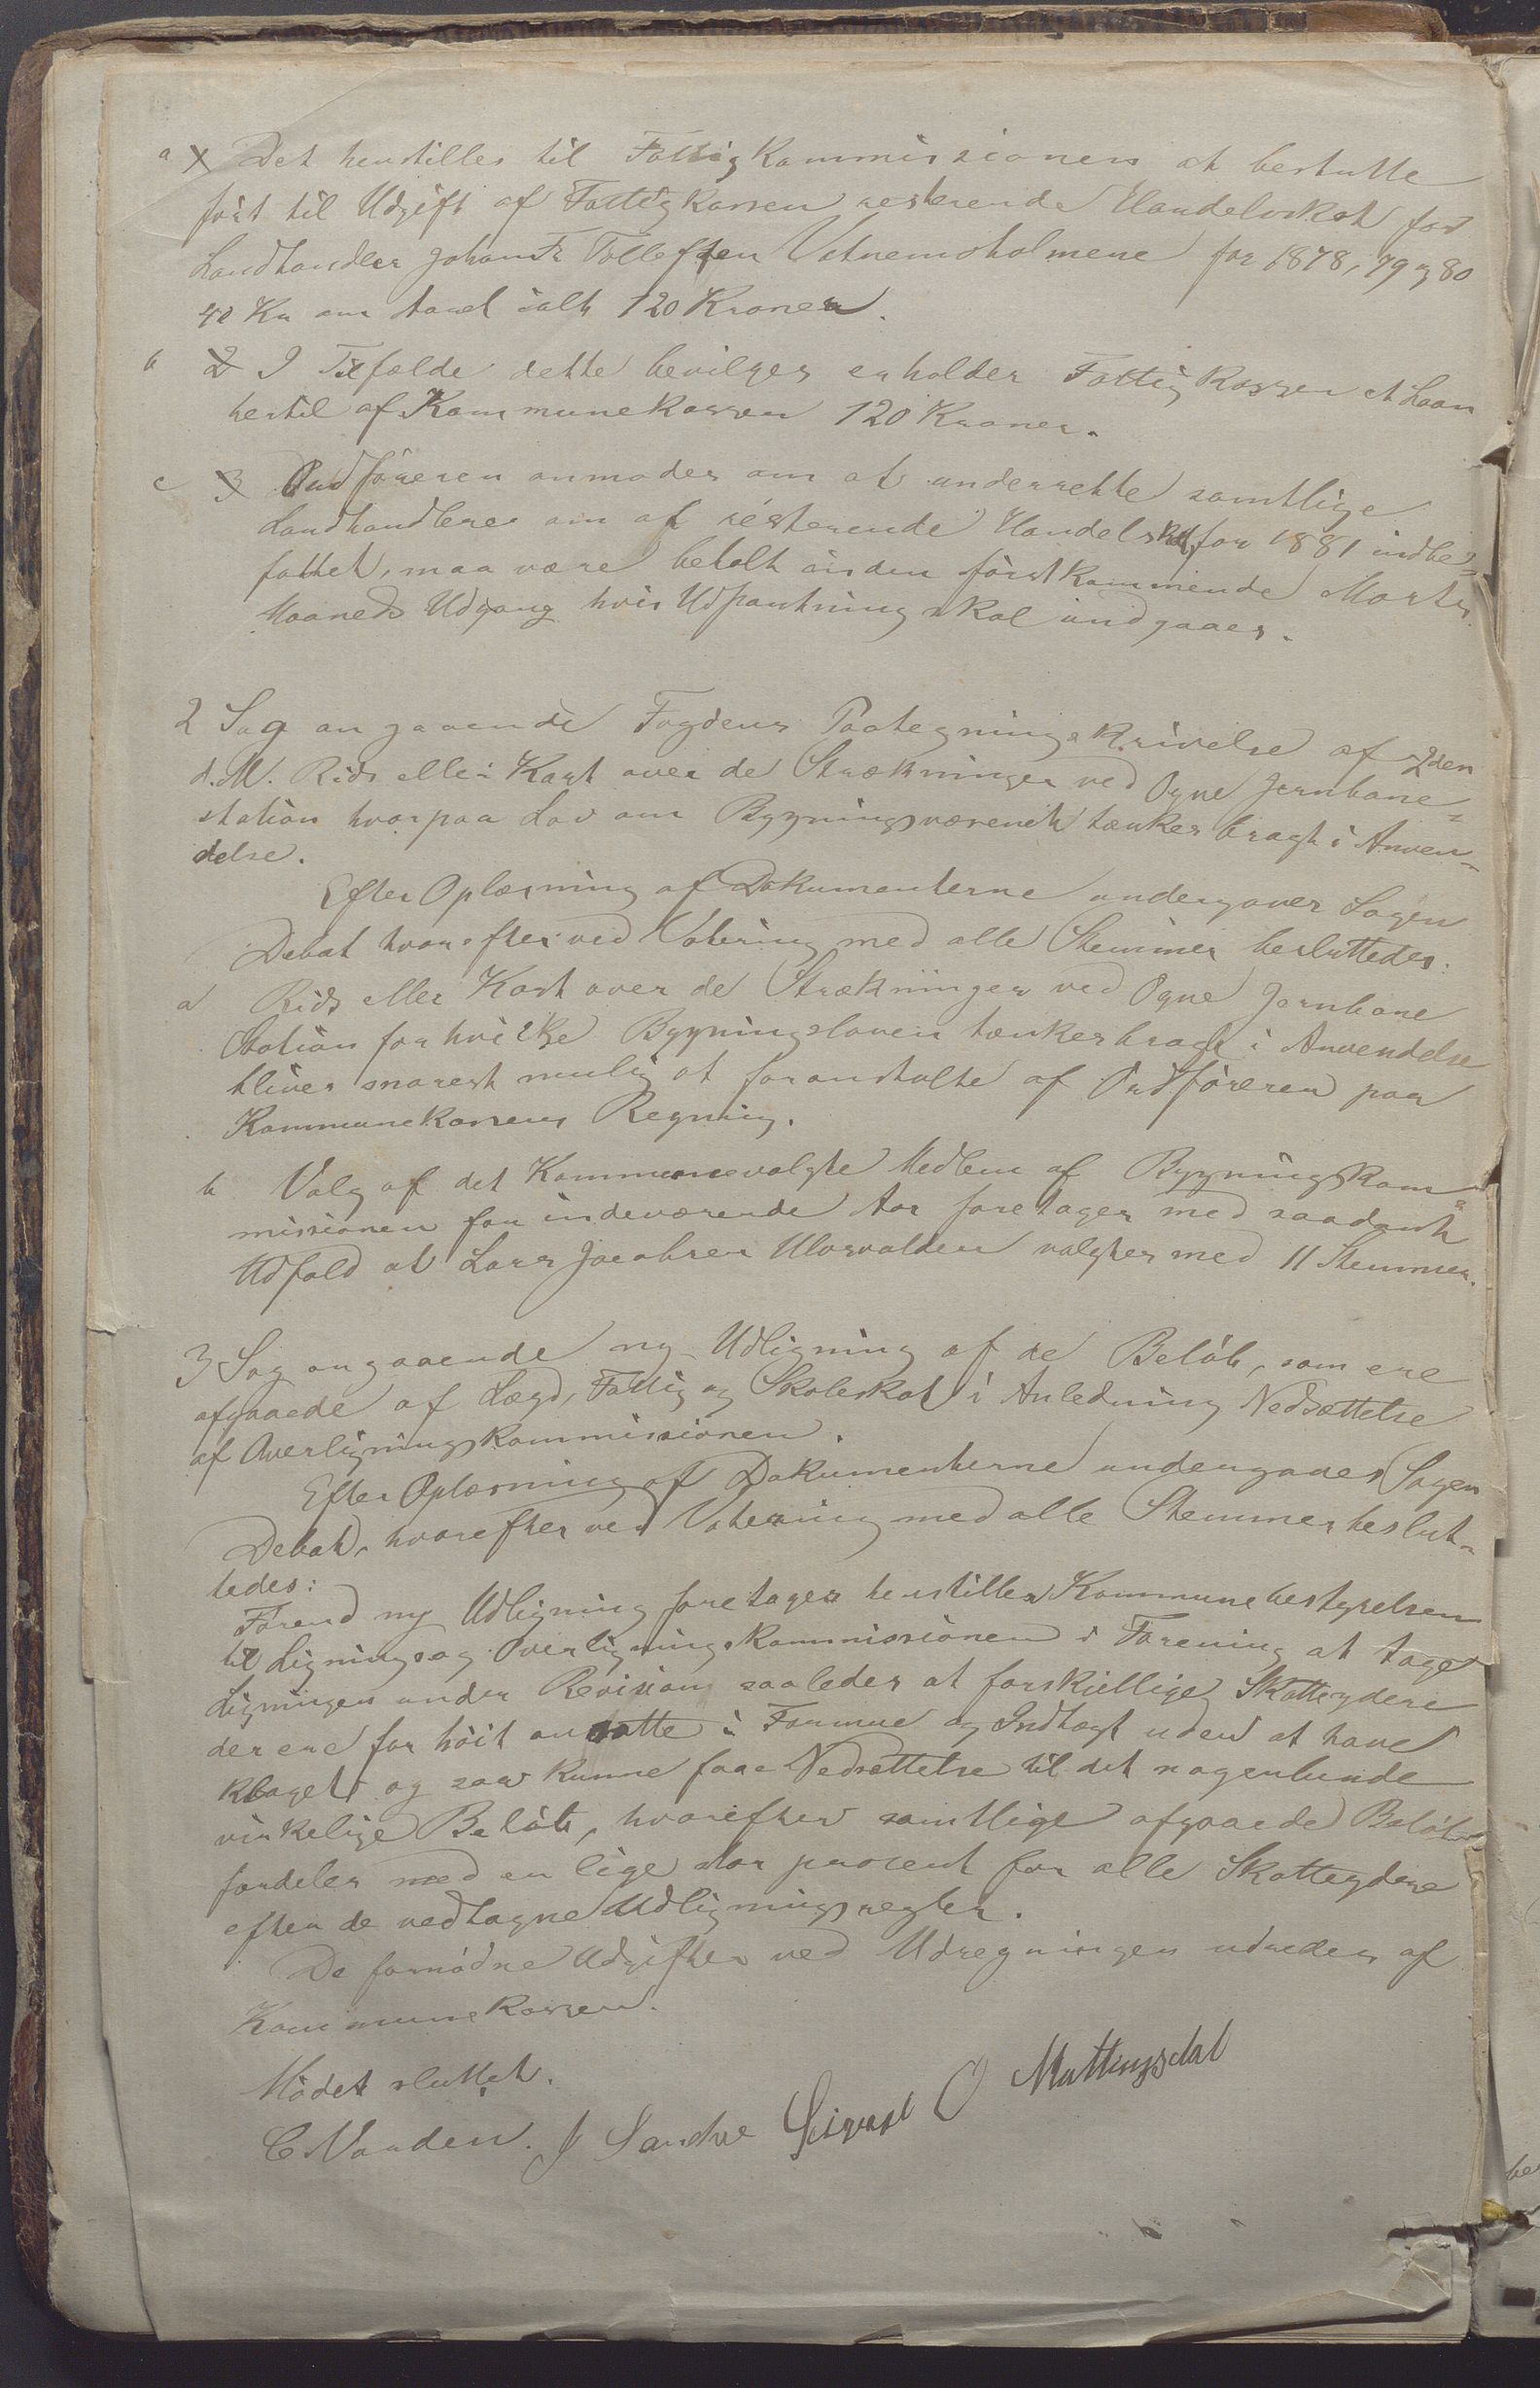 a Det henstilles til Fattigkommissionen at beslutte
ført til Udgift af Fattigkassen resterende Handelsskat for
Landhandler Johan Tollefsen Vatnemsholmene for 1878, 79 og 80
40 Kr om Aaret ialt 120 Kroner.
b I Tilfælde dette bevilges erholder Fattigkassen et Laan
hertil af Kommunekassen 120 Kroner.
c Ordføreren anmodes om at underrette samtlige
Landhandlere om at resterende Handelsskat for 1881 indbe=
fattet, maa være betalt inden førstkommende Marts
Maaneds Udgang hvis Udpantning skal undgaaes.
2 Sag angaaende Fogdens Paategningsskrivelse af 2den
d.M. Rids eller Kart over de Strækninger ved Ogne Jernbane=
station hvorpaa Lov om Bygningsvæsenet tænkes bragt i Anven=
delse.
Efter Oplæsning af Dokumenterne undergaves Sagen
Debat hvorefter ved Votering med alle Stemmer besluttedes:
a Rids eller Kart over de Strækninger ved Ogne Jernbane
Station for hvilke Bygningsloven tænkes bragt i Anvendelse
bliver snarest mulig at foranstalte af Ordføreren paa
Kommunekassens Regning.
b Valg af det Kommunevalgte Medlem af Bygningskom=
missionen for indeværende Aar foretages med saadant
Udfald at Lars Jacobsen valgtes med 11 Stemmer.
3 Sag angaaende ny Udligning af de Beløb, som ere
afgaaede af Lægd, Fattig og Skoleskat i Anledning Nedsættelse
af Overligningskommissionen.
Efter Oplæsning af Dokumenterne undergaves Sagen
Debat, hvorefter ved Votering med alle Stemmer beslut=
tedes:
Førend ny Udligning foretages henstiller Kommunebestyrelsen
til Lignings og Overligningskommissionen i Forening at tage
Ligningen under Revision saaledes at forskjellige Skatteydere
der ere for høit ansatte i Formue og Indtægt uden at have
klaget og saa kunne faae Nedsættelse til det nogenlunde
virkelige Beløb, hvorefter samtlige afgaaede Beløb
fordeles med en lige stor procent for alle Skatteydere
efter de vedtagne Udligningsregler.
De fornødne Udgifter ved Udregningen udredes af
Kommunekassen.
Mødet sluttet.
C Vaaden. J Sandve Sigvart O Mattingsdal